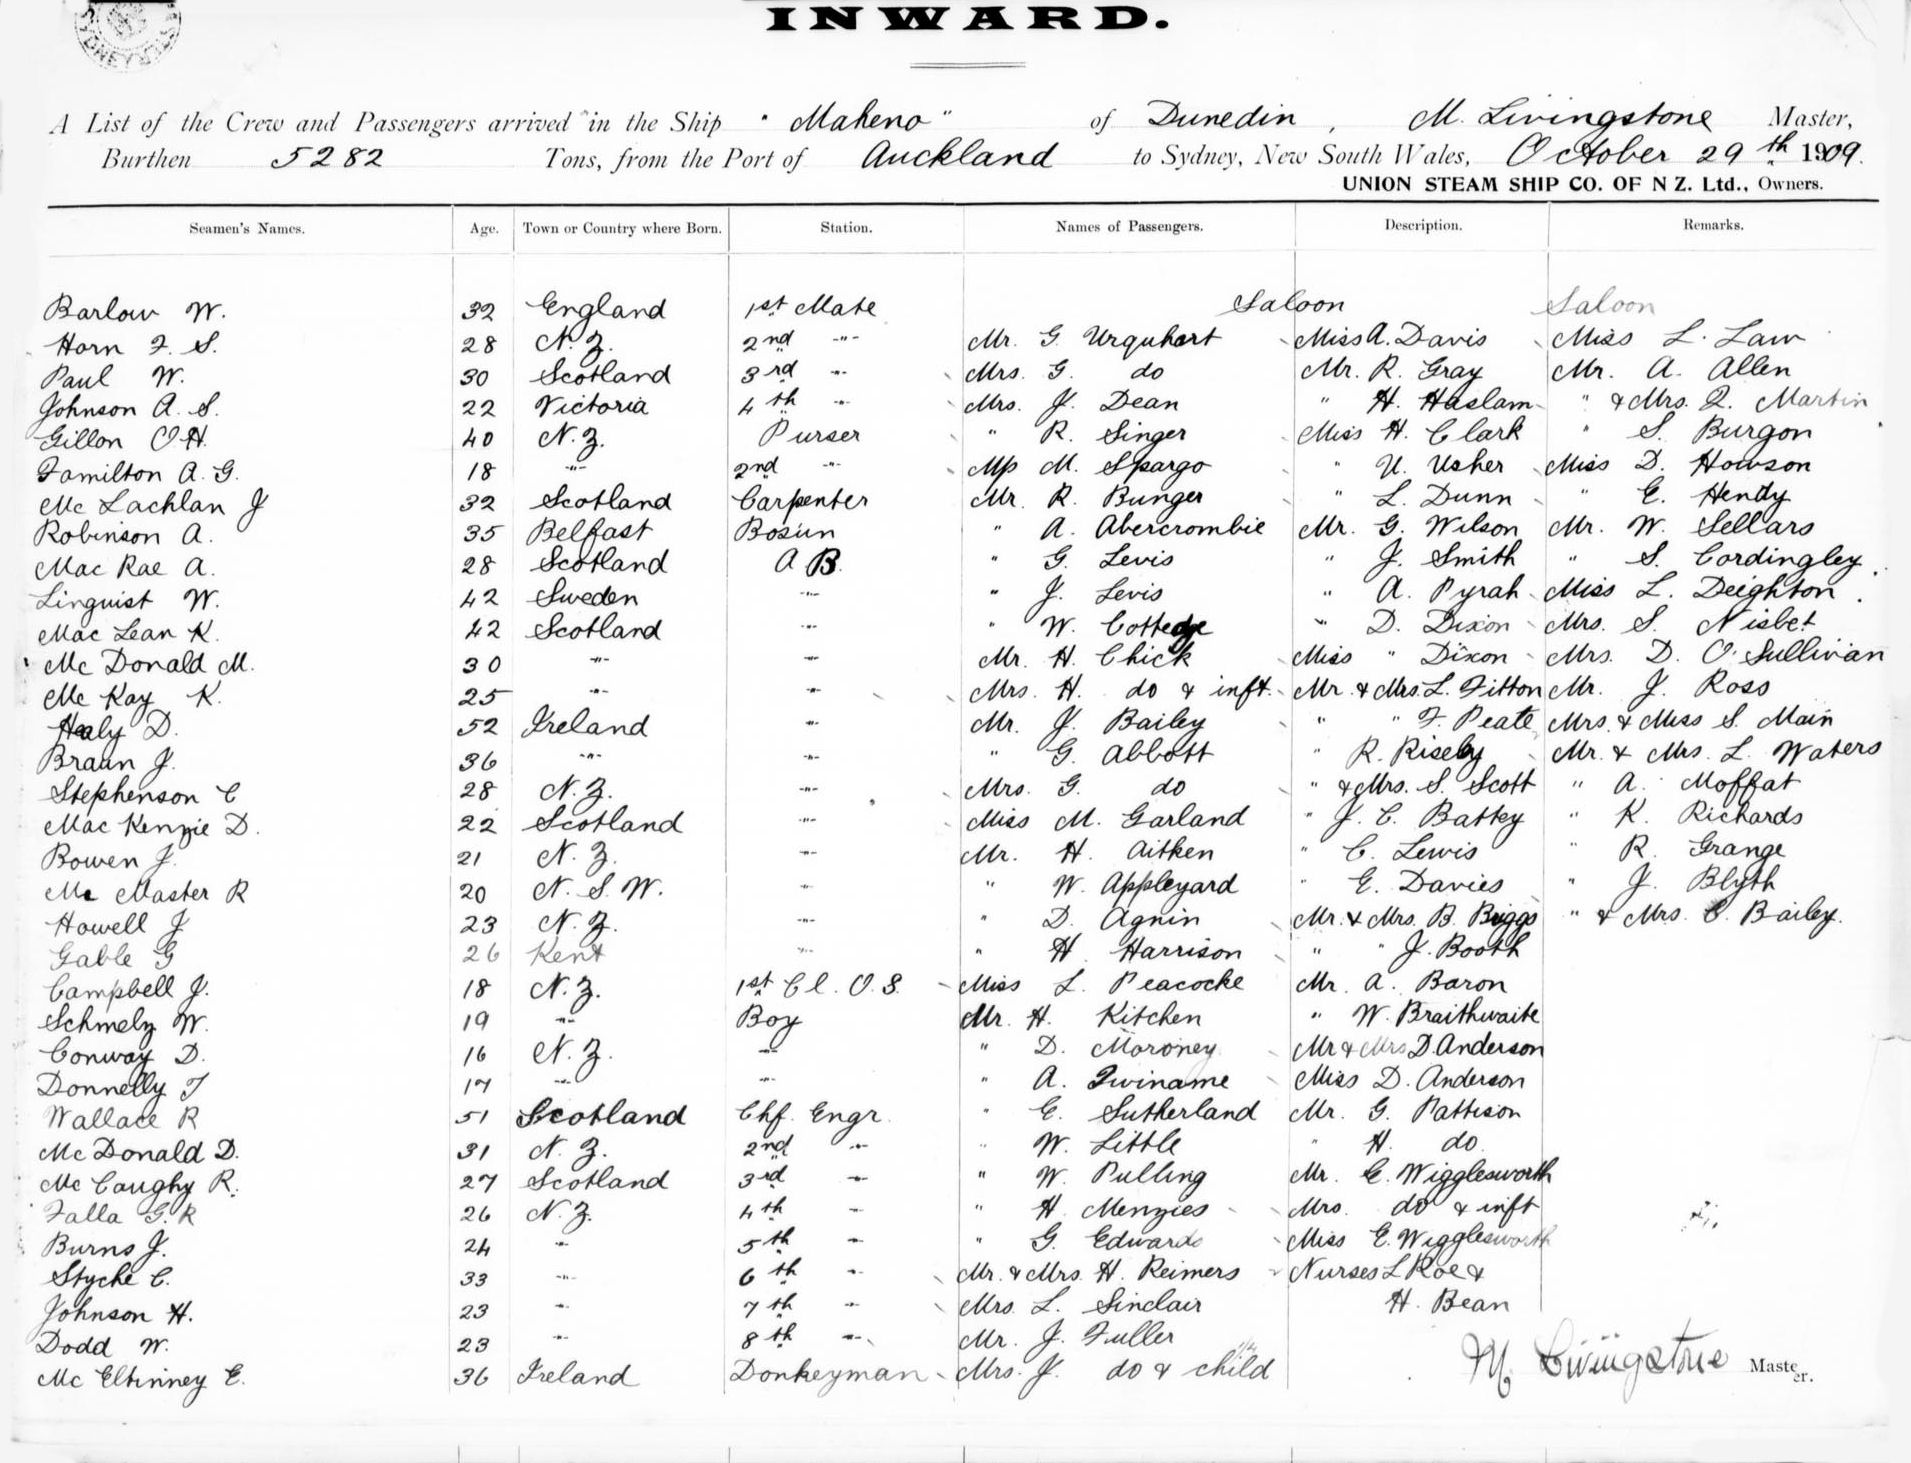 INWARD.
A List of the Crew and Passengers arrived in the Ship "Maheno" of Dunedin, M. Livingstone Master,
Burthen 5282 Tons, from the Port of Auckland to Sydney, New South Wales, October 29th 1909.
UNION STEAM SHIP CO. OF N Z. Ltd., Owners.
Seamen's Names. Age. Town or Country where Born. Station. Names of Passengers. Description. Remarks.
Barlow W. 32 England 1st Mate Saloon Saloon
Horn F. S. 28 N. Z. 2nd -"- Mr. G. Urquhart Miss A. Davis Miss L. Law
Paul W. 30 Scotland 3rd -"- Mrs. G. do Mr. R. Gray Mr. A. Allen
Johnson A. S. 22 Victoria 4th -"- Mrs. J. Dean " H. Haslam " & Mrs. Martin
Gillon O H. 40 N. Z. Purser " R. Singer Miss H. Clark " S. Burgon
Familton A. G. 18 -"- 2nd -"- M. Spargo " U. Usher Miss D. Howson
Mc Lachlan J 32 Scotland Carpenter Mr. R. Bunger " L. Dunn " E. Hendy
Robinson A. 35 Belfast Bosun " A. Abercrombie Mr. G. Wilson Mr. W. Sellars
Mac Rae A. 28 Scotland A B. " G. Levis " J. Smith " S. Cordingley
Linquist W. 42 Sweden -"- " J. Levis " A. Pyrah Miss L. Deighton
Mac Lean K. 42 Scotland -"- " W. Cottedge " D. Dixon Mrs. S. Nisbet
Mc Donald M. 30 -"- -"- Mr. H. Chick Miss " Dixon Mrs. D. O'Sullivan
Mc Kay K. 25 -"- -"- Mrs. H. do & inft. Mr. & Mrs. L. Fitton Mr. J. Ross
Healy D. 52 Ireland -"- Mr. J. Bailey " " F. Peate Mrs & Miss S. Main
Braun J. 36 -"- -"- " G. Abbott " R. Riseby Mr. & Mrs. L. Waters
Stephenson C 28 N. Z. -"- Mrs. G. do " & Mrs. S. Scott " A. Moffat
Mac Kenzie D. 22 Scotland -"- Miss M. Garland " J. C. Battey " K. Richards
Bowen J. 21 N. Z. -"- Mr. H. Aitken " C. Lewis " R. Grange
Mc Master R 20 N. S. W. -"- " W. Appleyard " E. Davies " J. Blyth
Howell J 23 N. Z. -"- " D. Agnin Mr. & Mrs. B. Briggs " & Mrs. C. Bailey.
Gable G 26 Kent -"- " H. Harrison " " J. Booth
Campbell J. 18 N. Z. 1st Cl. O. S. Miss L. Peacocke Mr. A. Baron
Schmelz W. 19 -"- Boy Mr. H. Kitchen " W. Braithwaite
Conway D. 16 N. Z. -"- " D. Moroney Mr & Mrs D. Anderson
Donnelly T 17 -"- -"- " A. Twiname Miss D. Anderson
Wallace R 51 Scotland Chf. Engr. " E. Sutherland Mr. G. Pattison
Mc Donald D. 31 N. Z. 2nd -"- " W. Little " H. do
Mc Caughy R. 27 Scotland 3rd -"- " W. Pulling Mr. E. Wigglesworth
Falla G. R 26 N. Z. 4th -"- " H. Menzies Mrs. do & inft
Burns J. 24 -"- 5th -"- " G. Edwards Miss E. Wigglesworth
Styche C. 33 -"- 6th -"- Mr. & Mrs. H. Reimers Nurses L Roe &
Johnson H. 23 -"- 7th -"- Mrs. L. Sinclair H. Bean
Dodd W. 23 -"- 8th -"- Mr. J. Fuller
Mc Eltinney E. 36 Ireland Donkeyman Mrs. J. do & child
M. Livingstone Master.